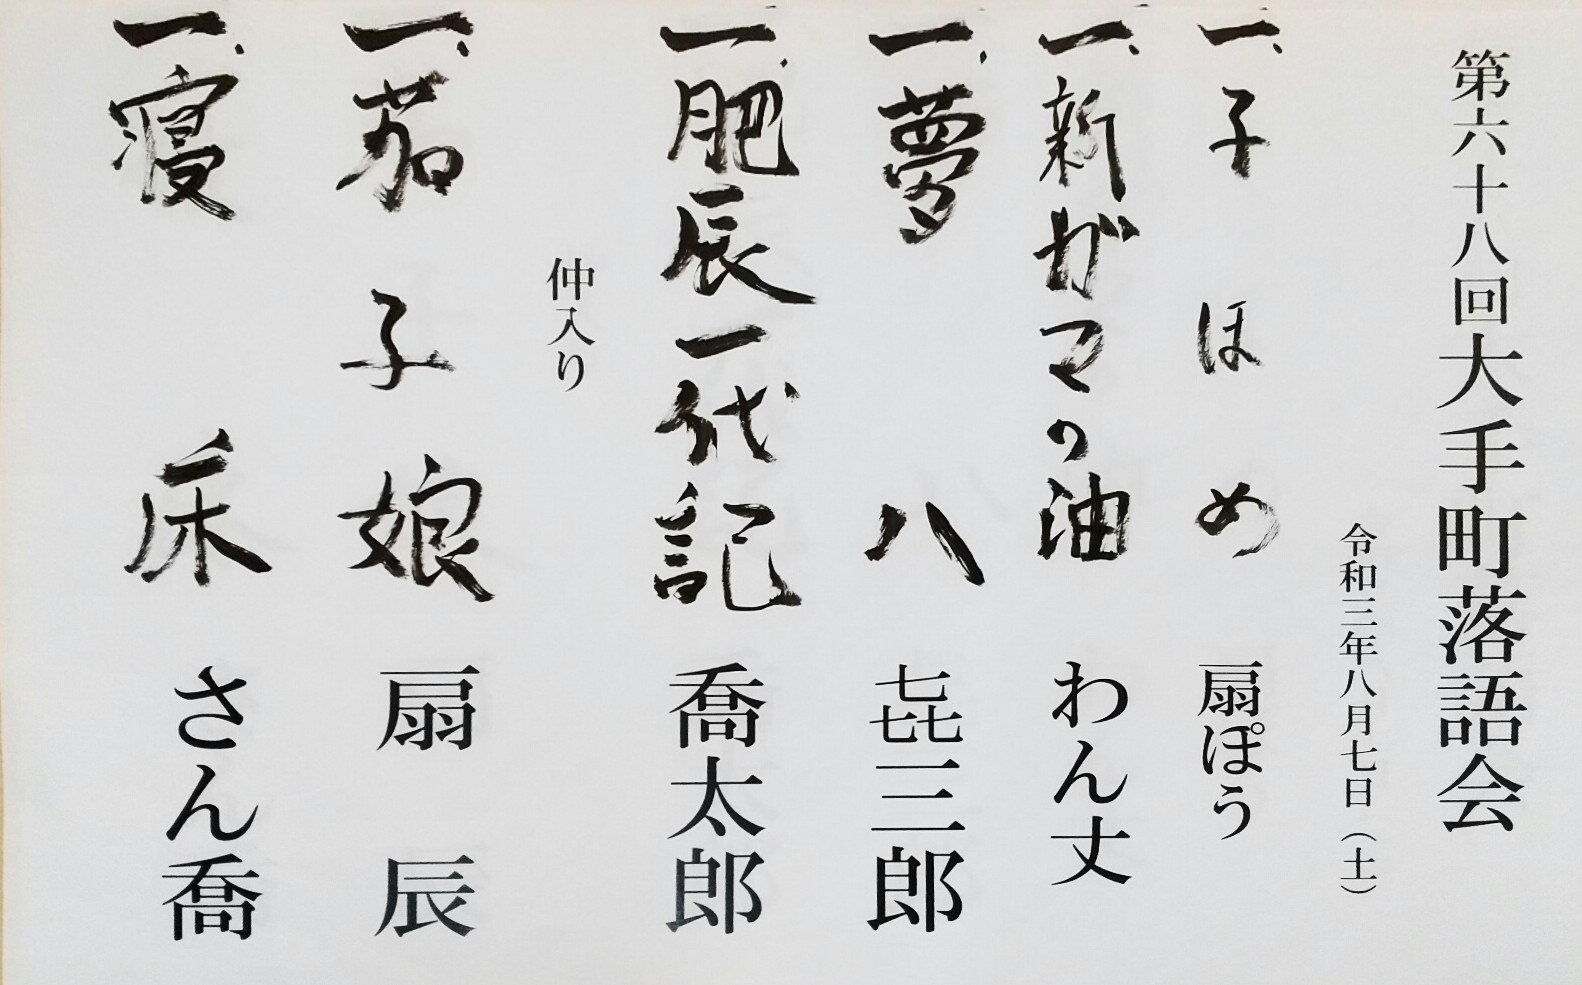 第六十八回大手町落語会
令和三年八月七日（土）
一、子ほめ 扇ぽう
一、新ガマの油 わん丈
一、夢八 㐂三郎
一、肥辰一代記 喬太郎
仲入り
一、茄子娘 扇辰
一、寝床 さん喬